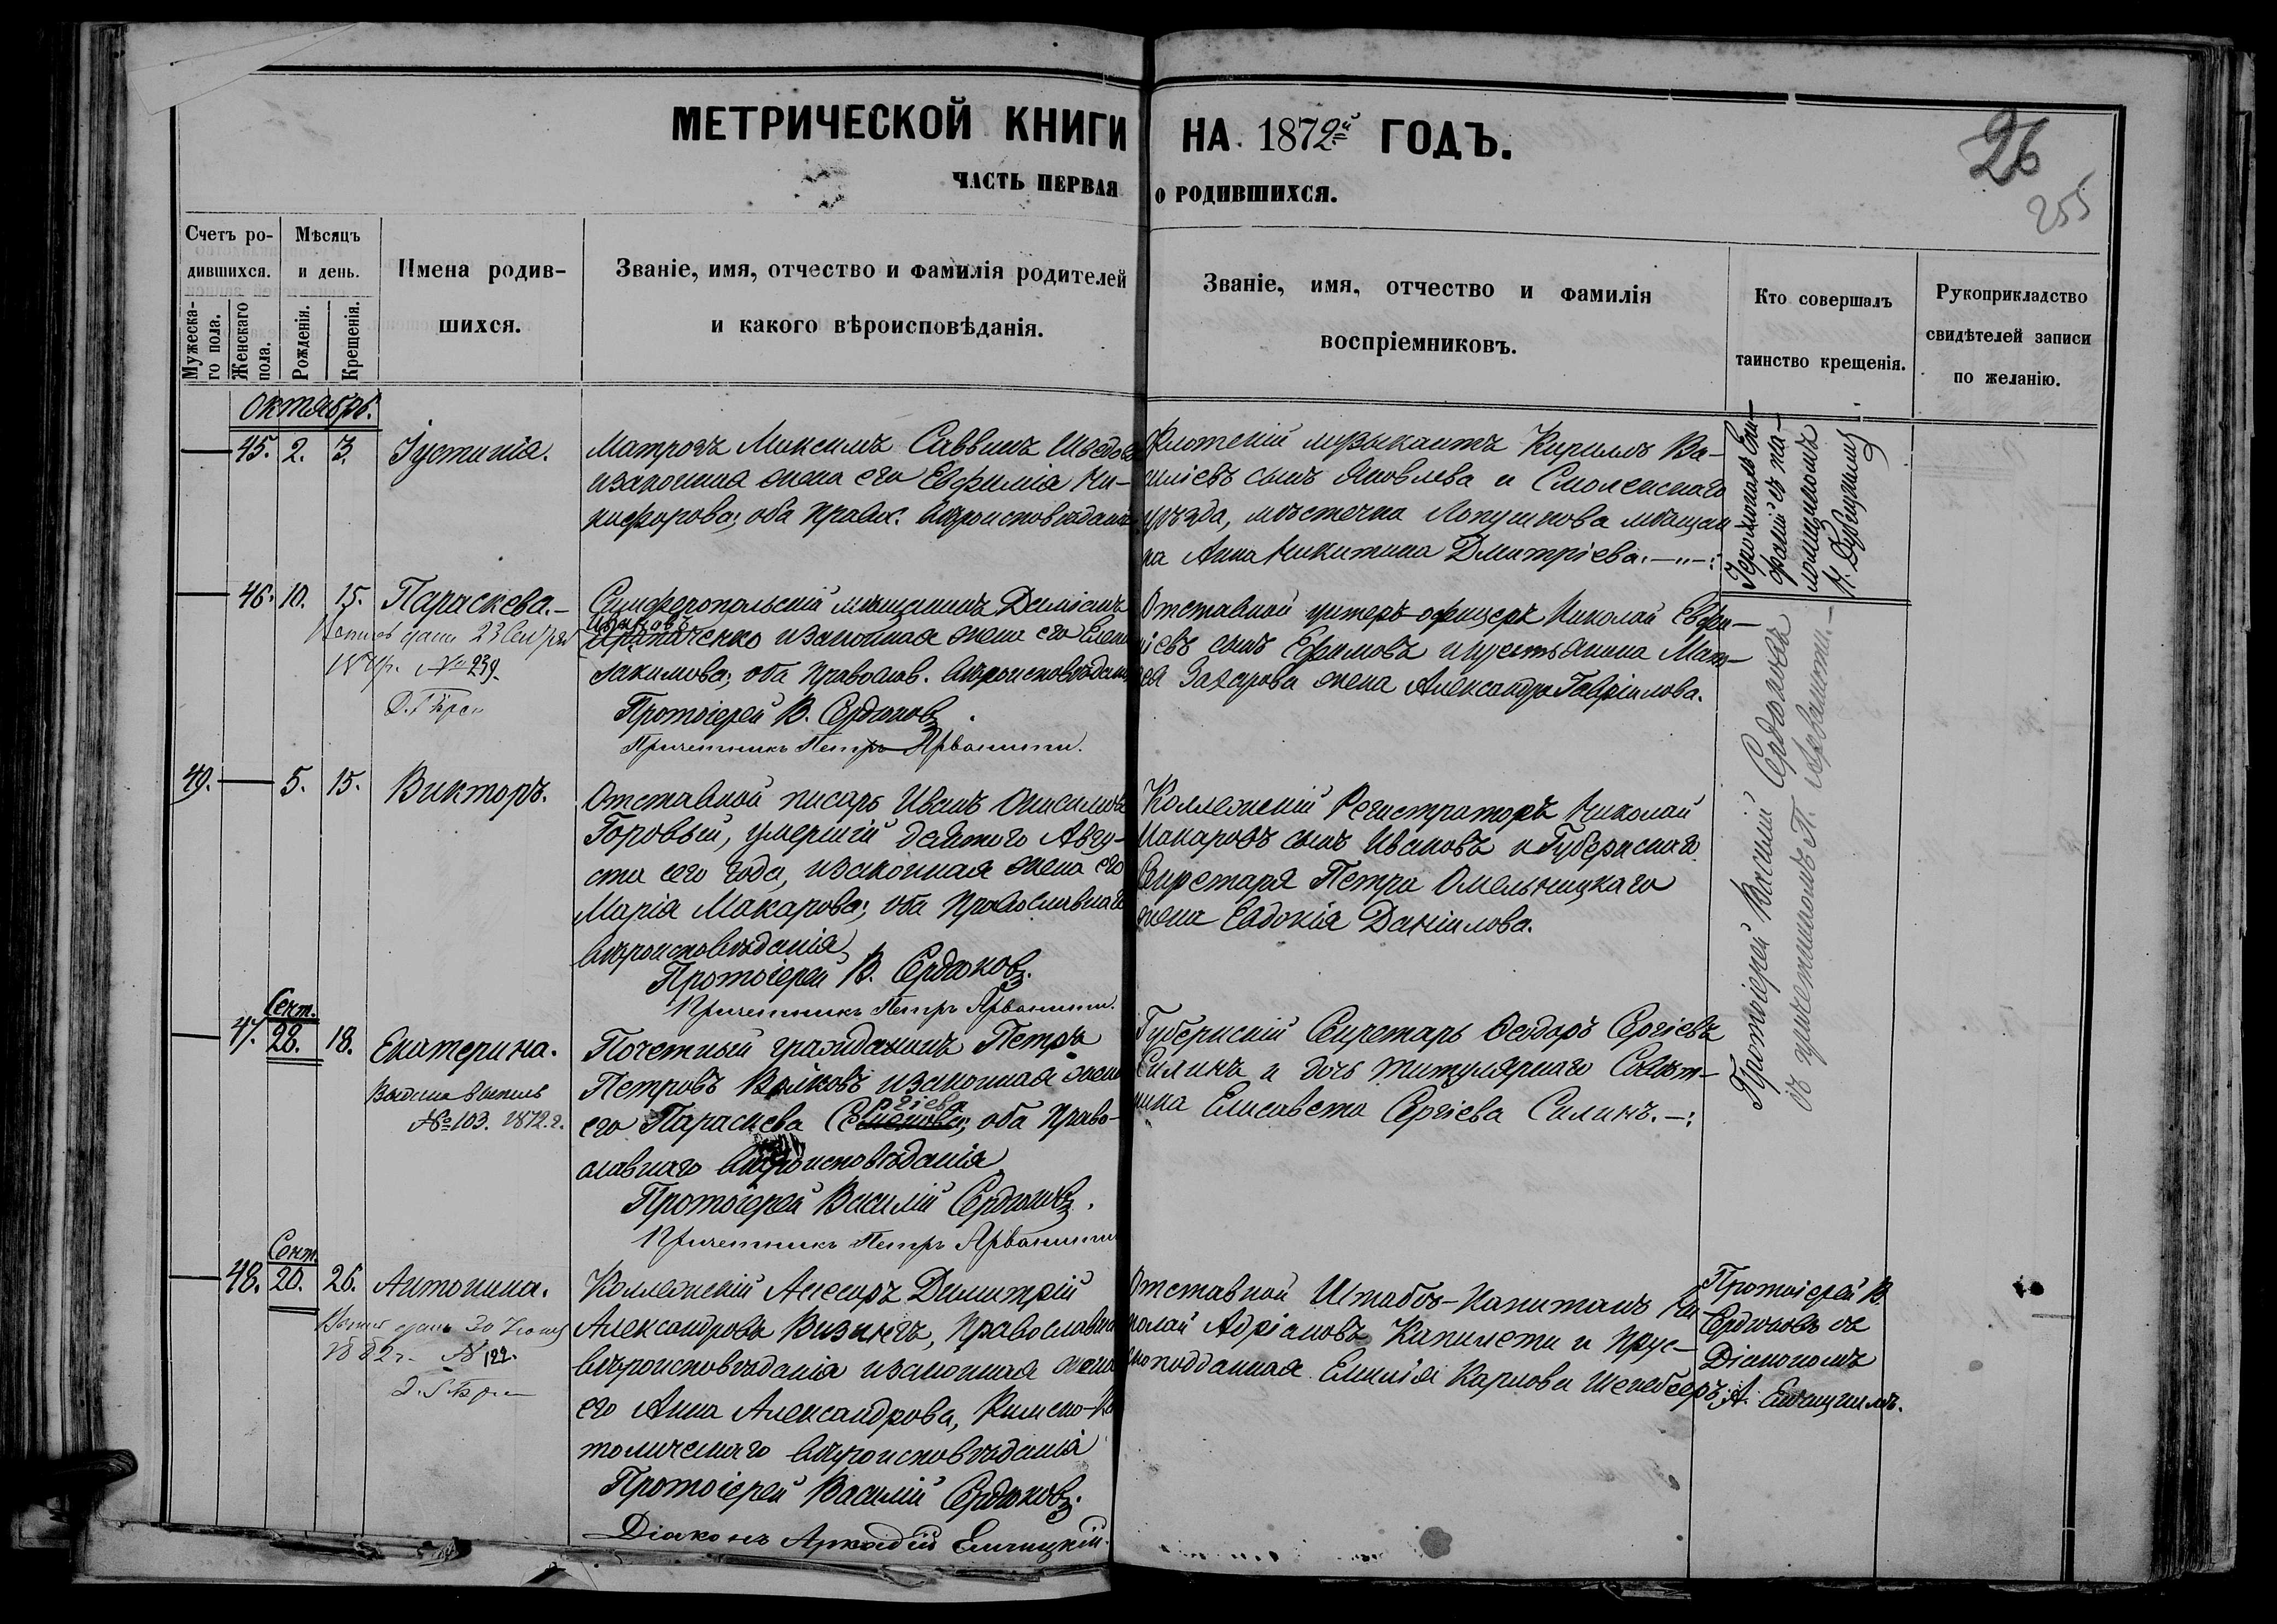 МЕТРИЧЕСКОЙ КНИГИ НА 1872й ГОДЪ.
26
255
ЧАСТЬ ПЕРВАЯ О РОДИВШИХСЯ.
Счетъ ро-
дившихся.
Мужеска-
го пола.
Женскаго
пола.
Мѣсяцъ
и день.
Рожденія.
Крещенія.
Имена родив-
шихся.
Званіе, имя, отчество и фамилія родителей
и какого вѣроисповѣданія.
Званіе, имя, отчество и фамилія
воспріемниковъ.
Кто совершалъ
таинство крещенія.
Рукоприкладство
свидѣтелей записи
по желанію.
Октябрь.
45. 2. 3. Іустинія.
Матрозъ Максимъ Саввинъ
и законная жена его Евфимія Ни-
кифорова; оба правос. вѣроисповѣданія
Флотскій музыкантъ Кириллъ Ва-
силіевъ сынъ Яковлева и Смоленскаго
уѣзда, мѣстечка мѣщан-
ка Анна Никитина Дмитріева.
46. 10. 15. Параскева.
23 Сентября
№ 239.
Симферопольскій мѣщанинъ Даміанъ
и законная жена его Елена
Іакимова; оба православ. вѣроисповѣданія
Протоіерей В. Сердюковъ.
Причетникъ Петръ Арванити.
Отставной унтеръ-офицеръ Николай Евфи-
міевъ сынъ Ефимовъ и Мат-
вѣя Захарова жена Александра Гавріилова.
49. 5. 15. Викторъ.
Отставной писарь Иванъ Онисимовъ
Горовый, умершій девятого Авгу-
ста сего года, и законная жена его
Марія Макарова; оба Православнаго
вѣроисповѣданія
Протоіерей В. Сердюковъ.
Причетникъ Петръ Арванити.
Коллежскій Регистраторъ Николай
Макаровъ сынъ Ивановъ и Губернскаго
Секретаря Петра Омельницкаго
жена Евдокія Даніилова.
Сент.
47. 28. 18. Екатерина.
№ 103. 1872.г.
Почетный гражданинъ Петръ
Петровъ Волковъ и законная жена
ргіева
его Параскева Семенова; оба Право-
славнаго вѣроисповѣданія
Протоіерей Василій Сердюковъ.
Причетникъ Петръ Арванити
Губернскій Секретарь Ѳеодоръ Сергіевъ
Силинъ и дочь титулярнаго Совѣт-
ника Елисавета Сергіева Силинъ.
Протоіерей Василій Сердюковъ
съ причетникомъ П. Арванити.
Сент.
48. 20. 26. Антонина.
30
1882г. № 122.
Коллежскій Ассесоръ Димитрій
Александровъ Визингъ, Православнаго
вѣроисповѣданія и законная жена
его Анна Александрова, Римско-Ка
толическаго вѣроисповѣданія
Протоіерей Василій Сердюковъ.
Діаконъ Аркадій
Отставной Штабсъ-Капитанъ Ни-
колай Адріановъ Капилети и Прус-
скоподданная Емилія Карлова
Протоіерей В.
Сердюковъ съ
Діакономъ